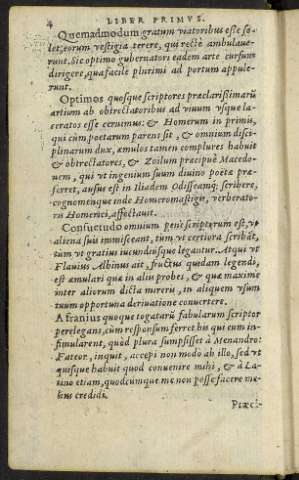 4 LIBER PRIMVS.
Quemadmodum gratum viatoribus esse so-
let, eorum vestigia terere, qui rectè ambulaue-
runt. Sic optimo gubernatori eadem arte cursum
dirigere, qua facile plurimi ad portum appule-
runt.
Optimos quosque scriptores præclarißimarũ
artium ab obtrectatoribus ad viuum vsque la-
ceratos esse cernimus: & Homerum in primis,
qui cùm poetarum parens sit, & omnium disci-
plinarum dux, æmulos tamen complures habuit
& obtrectatores, & Zoilum præcipuè Macedo-
nem, qui vt ingenium suum diuino poetæ præ-
ferret, ausus est in Iliadem Odisseamq; scribere,
cognomenque inde Homeromastigis, verberato-
ris Homerici, affectauit.
Consuetudo omnium penè scriptorum est, vt
aliena suis immisceant, tum vt certiora scribãt,
tum vt gratius iucundiusque legantur. Atqui vt
Flauius Albinus ait, fructus quidam legendi,
est æmulari quæ in alijs probes, & quæ maximè
inter aliorum dicta mireris, in aliquem vsum
tuum opportuna deriuatione conuertere.
Afranius quoque togatarũ fabularum scriptor
perelegans, cùm responsum ferret his qui eum in-
simularent, quòd plura sumpsisset à Menandro:
Fateor, inquit, accepi non modo ab illo, sed vt
quisque habuit quod conuenire mihi, & à La-
tino etiam, quodcumque me non posse facere me-
lius credidi.
Præci-